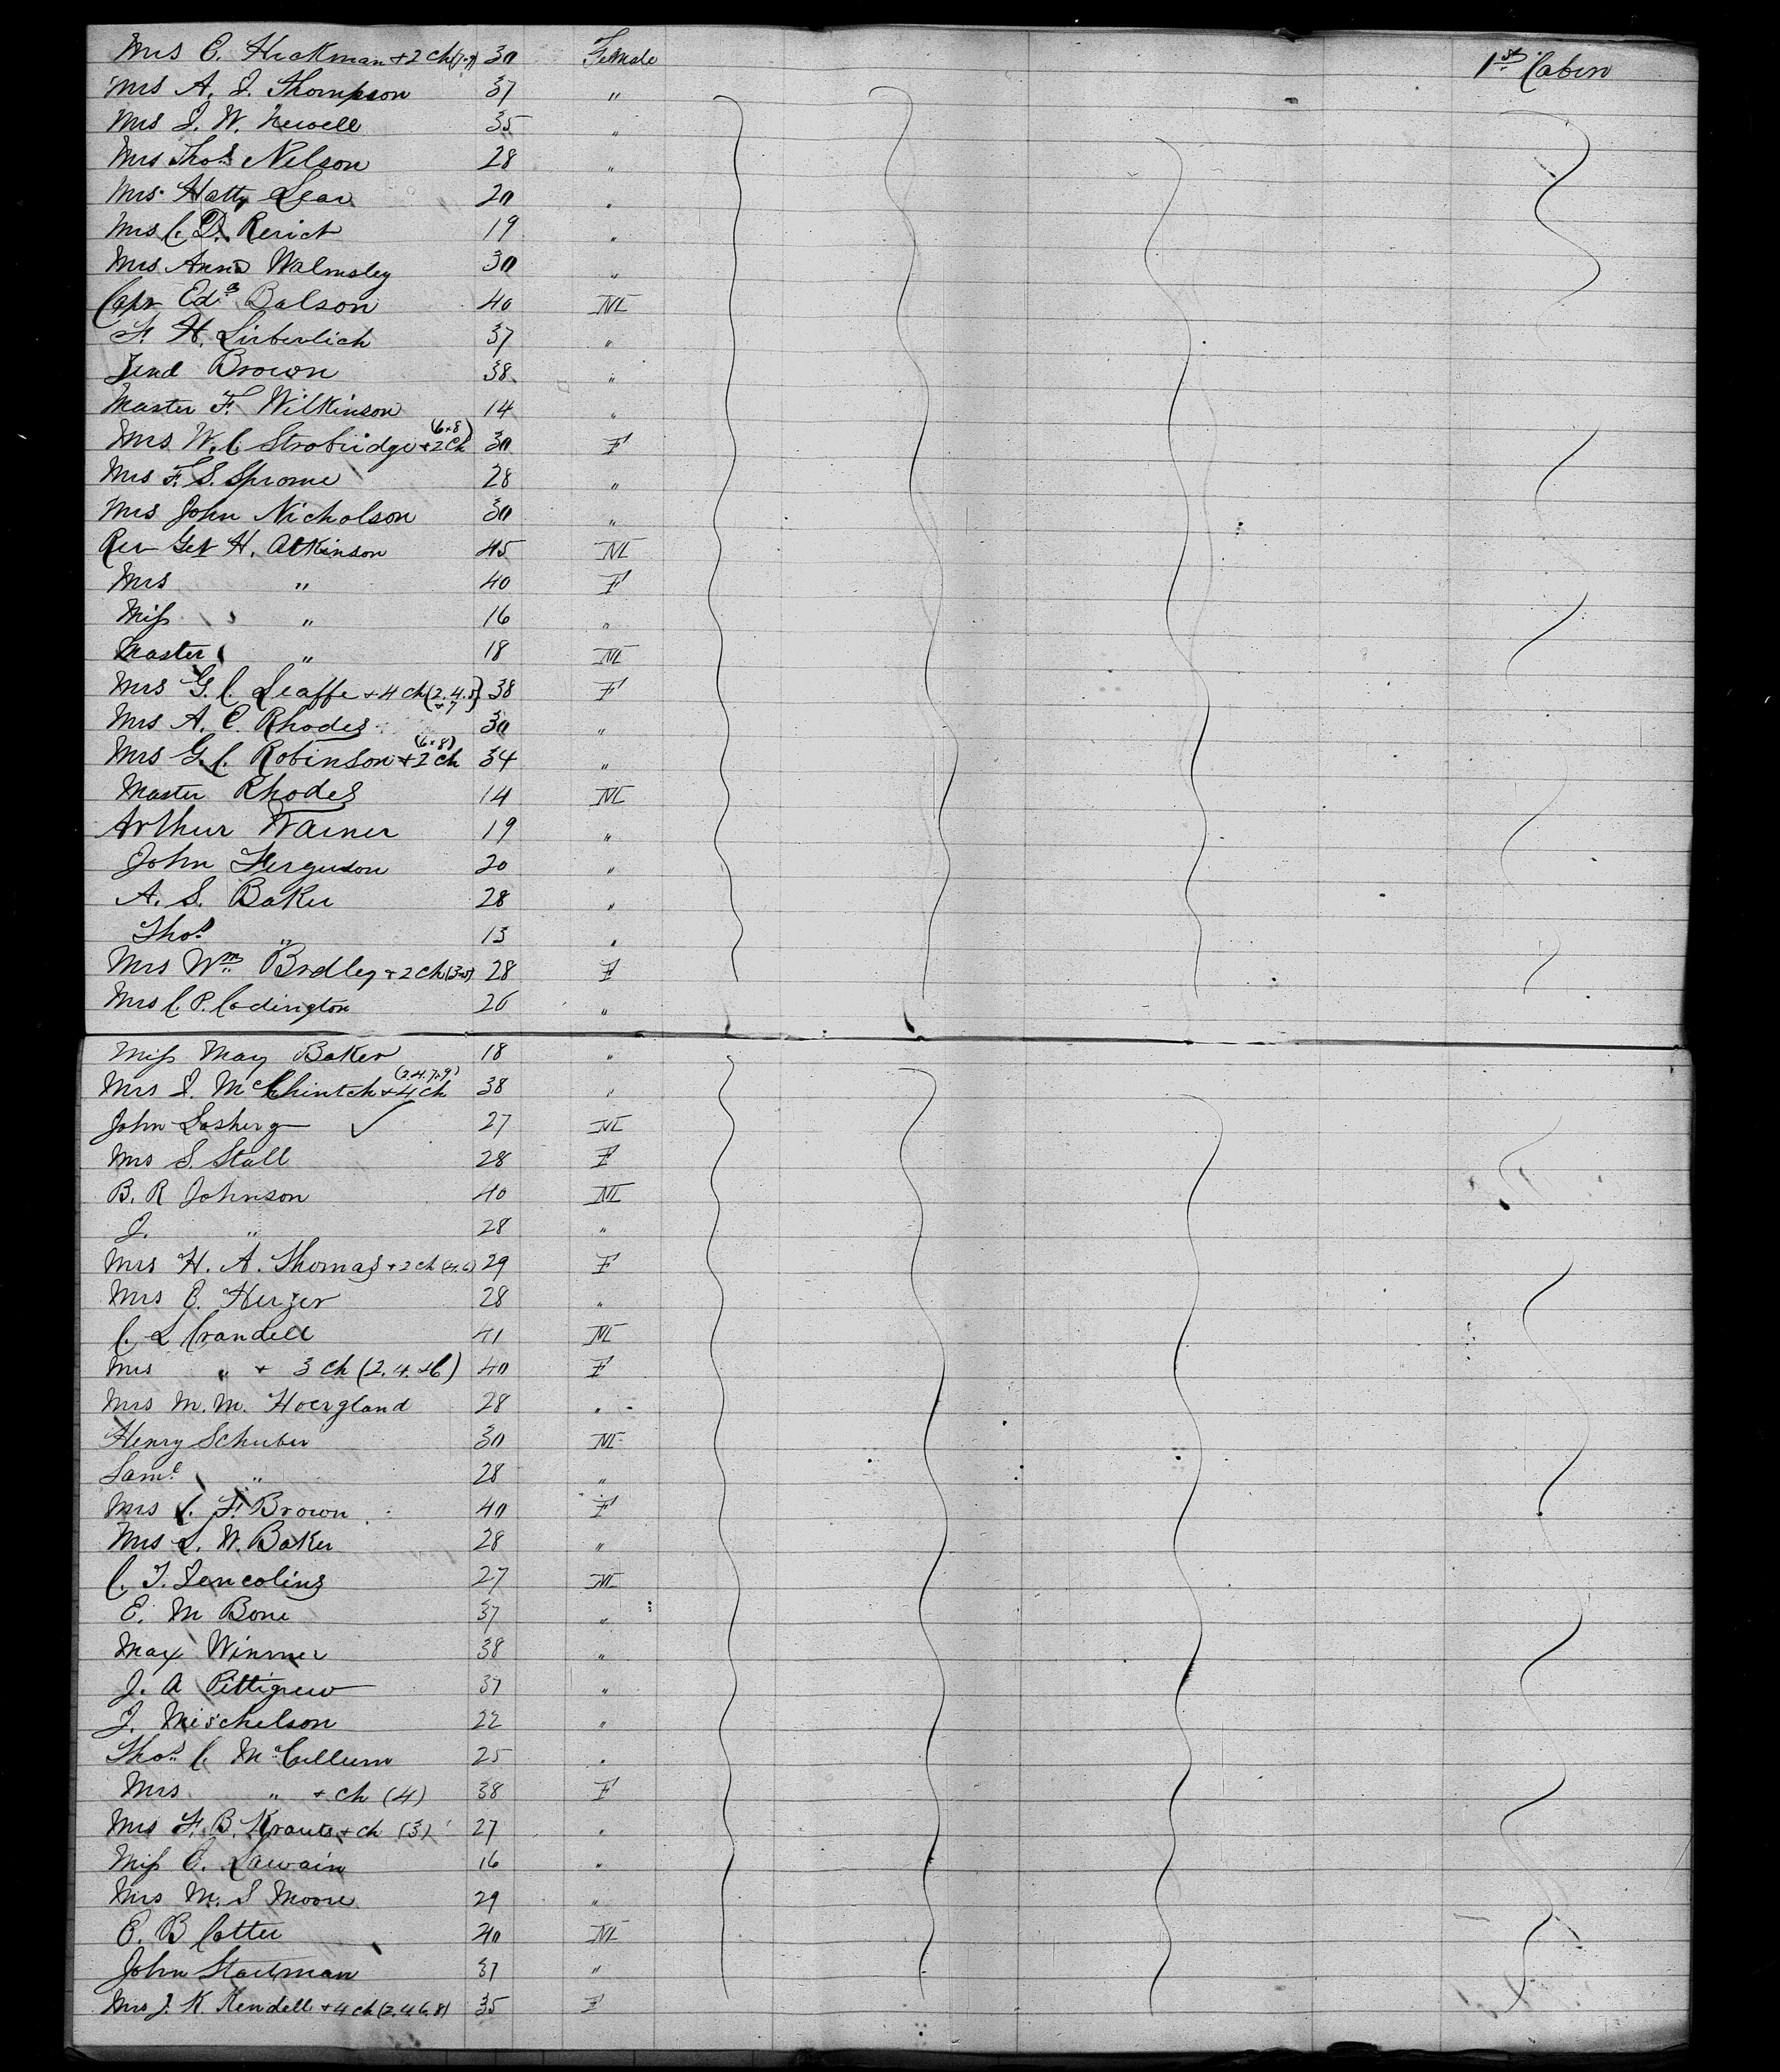 Mrs C. Hickman + 2 ch (7.9) 30 Female 1st Cabin
Mrs A. J. Thompson 37 "
Mrs J. W. Newell 35 "
Mrs Thos Nelson 28 "
Mrs Hatty Lear 20 "
Mrs C. D. Rerick 19 "
Mrs Anna Walmsley 30 "
Capt Edd Balson 40 M
F. H. Lieberlich 37 "
Brown 38 "
Master F. Wilkinson 14 "
Mrs W. C. Strobridge + 2 ch (6+8) 30 F
Mrs F. S. Sprome 28 "
Mrs John Nicholson 30 "
Rev H. Atkinson 45 M
Mrs " 40 F
Miss " 16 "
Master " 18 M
Mrs G. C. Leaffe + 4 ch (2.4.5 + 7) 38 F
Mrs A. C. Rhodes 30 "
Mrs G. C. Robinson + 2 ch (6+8) 34 "
Master Rhodes 14 M
Arthur Warner 19 "
John Ferguson 20 "
A. S. Baker 28 "
Thos " 13 "
Mrs Wm Bradley + 2 ch (3+5) 28 F
Mrs C. P. Codington 26 "
Miss May Baker 18 "
Mrs J. McClintch + 4 ch (2.4.7+9) 38 "
John Lasherg ✓ 27 M
Mrs S. Stall 28 F
B. R Johnson 40 M
J. " 28 "
Mrs H. A. Thomas + 2 ch (4.6) 29 F
Mrs C. Herzer 28 "
C. L Crandell 41 M
Mrs " + 3 ch (2.4.+6) 40 F
Mrs M. M. Hoergland 28 "
Henry Schuber 30 M
Saml " 28 "
Mrs C. F. Brown 40 F
Mrs L. W. Baker 28 "
C. T. Lencolins 27 M
E. M Bone 37 "
Max Winmer 38 "
J. A Pettigrew 37 "
J. Mischelson 22 "
Thos C. McCullum 25 "
Mrs " + ch (4) 38 F
Mrs F. B. Krauts + ch (3) 27 "
Miss C. Lawain 16 "
Mrs M. S Moore 29 "
E. B Cotter 40 M
John Stattman 37 "
Mrs J. K Kendell + 4 ch (2.4.6.8) 35 F